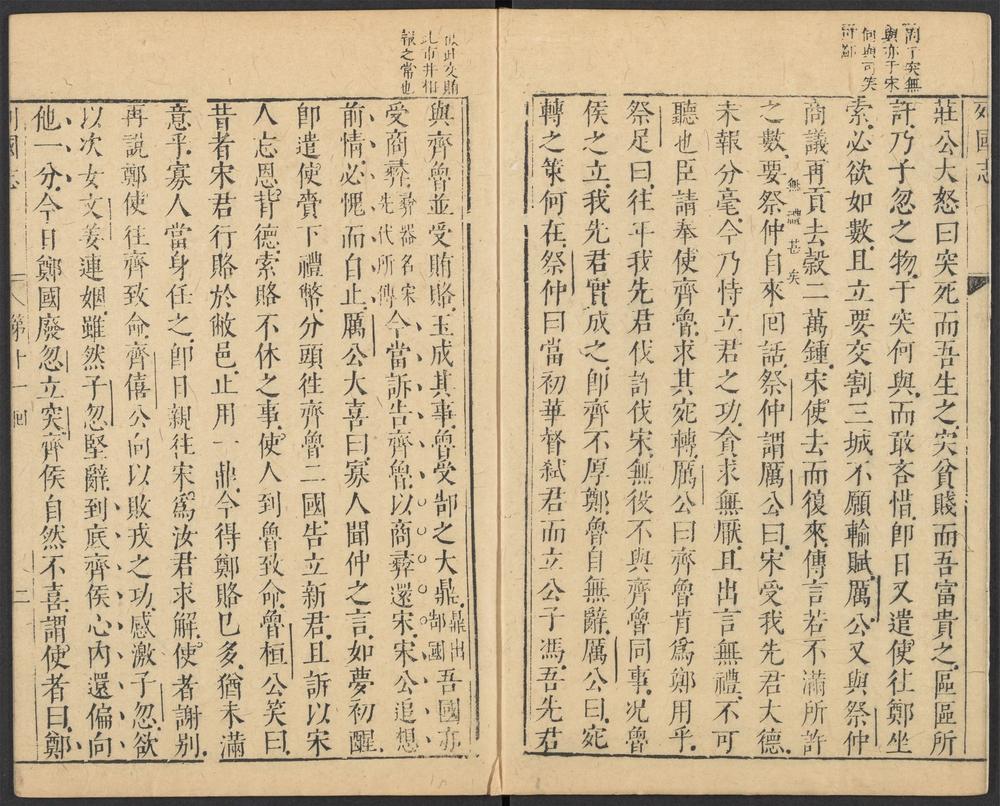 列國志
莊公大怒曰突死而吾生之突貧賤而吾富貴之區區所
許乃子忽之物于突何與而敢吝惜即日又遣使往鄭坐
索必欲如數且立要交割三城不願輸賦厲公又與祭仲
商議再貢去穀二萬鍾宋使去而復來傳言若不滿所許
之數要祭仲自來回話祭仲謂厲公曰宋受我先君大德
無禮甚矣
未報分毫今乃恃立君之功貪求無厭且出言無禮不可
聽也臣請奉使齊魯求其宛轉厲公曰齊魯肯爲鄭用乎
祭足曰往年我先君伐許伐宋無役不與齊魯同事況魯
侯之立我先君實成之即齊不厚鄭魯自無辭厲公曰宛
轉之策何在祭仲曰當初華督弒君而立公子馮吾先君
彼此交賄
此市井相
報之常也
與齊魯並受賄賂玉成其事魯受郜之大鼎鼎出郜國吾國亦
受商彝彝器名宋先代所傳今當訴告齊魯以商彝還宋宋公追想
前情必愧而自止厲公大喜曰寡人聞仲之言如夢初醒
即遣使賫下禮幣分頭往齊魯二國告立新君且訴以宋
人忘恩背德索賂不休之事使人到魯致命魯桓公笑曰
昔者宋君行賂於敝邑止用一鼎今得鄭賂已多猶未滿
意乎寡人當身任之即日親往宋爲汝君求解使者謝別
再說鄭使往齊致命齊僖公向以敗戎之功感激子忽欲
以次女文姜連姻雖然子忽堅辭到底齊侯心內還偏向
他一分今日鄭國廢忽立突齊侯自然不喜謂使者曰鄭
列國志 第十一回 二